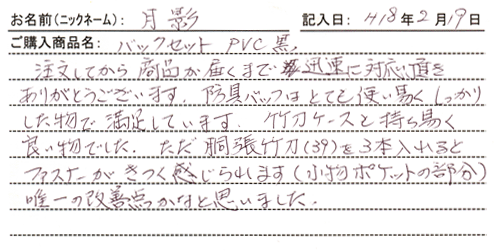 お名前(ニックネーム): 月影 記入日: H18年2月19日
ご購入商品名: バックセット PVC黒
注文してから商品が届くまで迅速に対応い頂き
ありがとうございます。防具バッグはとても使い易くしっかり
した物で満足しています。竹刀ケースも持ち易く
良い物でした。ただ胴張竹刀(39)を3本入れると
ファスナーがきつく感じられます(小物ポケットの部分)
唯一の改善点かなと思いました。